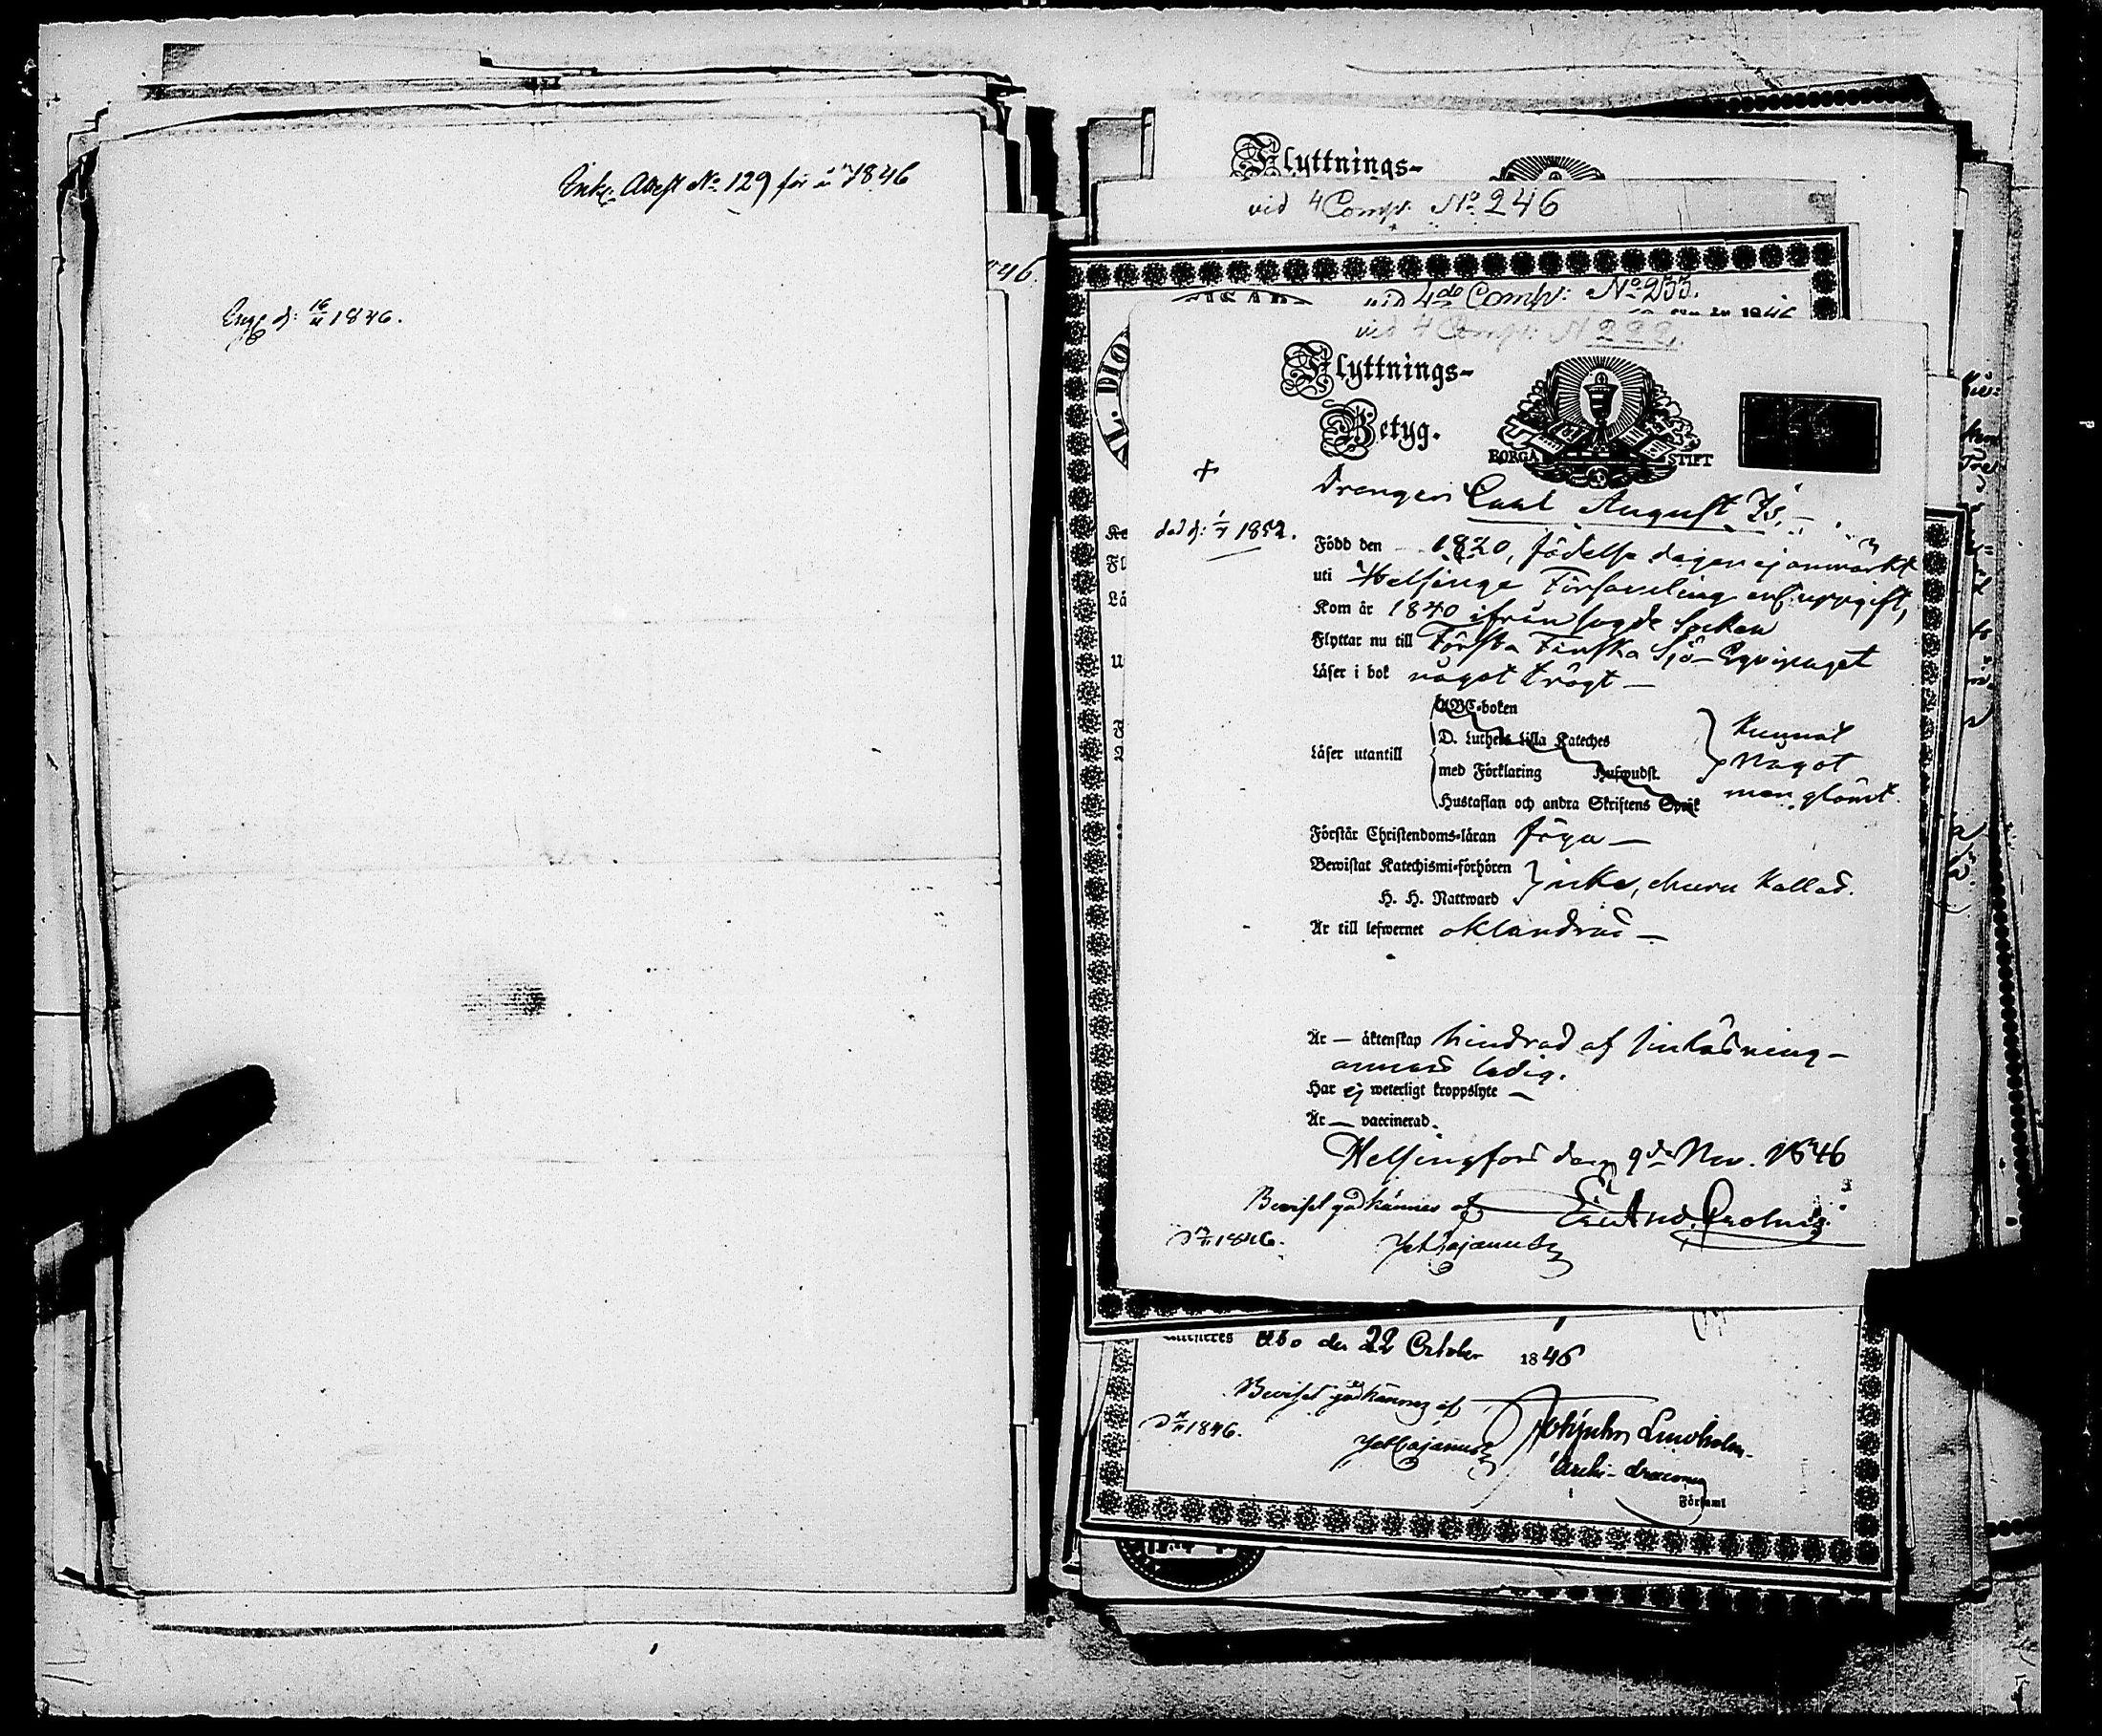 Ink: Attest No 129 för år 1846
d: 16/11 1846.
Flyttnings-
vid 4 Comp: No 246
vid 4de Comp: No 255.
vid 4 Comp: N 222.
Flyttnings-
Betyg.
BORGÅ STIFT
Drengen Carl August
död d: 1/7 1852.
Född den 1820, födelse dagen ej anmärkt
uti Helsinge Församling enl. uppgift,
Kom år 1840 ifrån sagde Socken
Flyttar nu till Första Finska Sjö-Equipaget
Läser i bok något trögt —
ABC-boken
D. Luthers lilla Kateches
Läser utantill
med Förklaring Hufwudst.
Hustaflan och andra Skriftens Språk
kunnat
något
men glömt.
Förstår Christendoms-läran föga —
Bewistat Katechismi-förhören
H. H. Nattward
icke, ehuru kallad.
Är till lefwernet oklandrad —
Är — äktenskap hindrad af
annars ledig.
Har ej weterligt kroppslyte —
Är — vaccinerad.
Helsingfors den 9de Nov. 1846
Beviset godkännes af
1846.
Åbo den 22 October 1846
Beviset godkännes af
1846.
Lindholm
Archi-
Församl